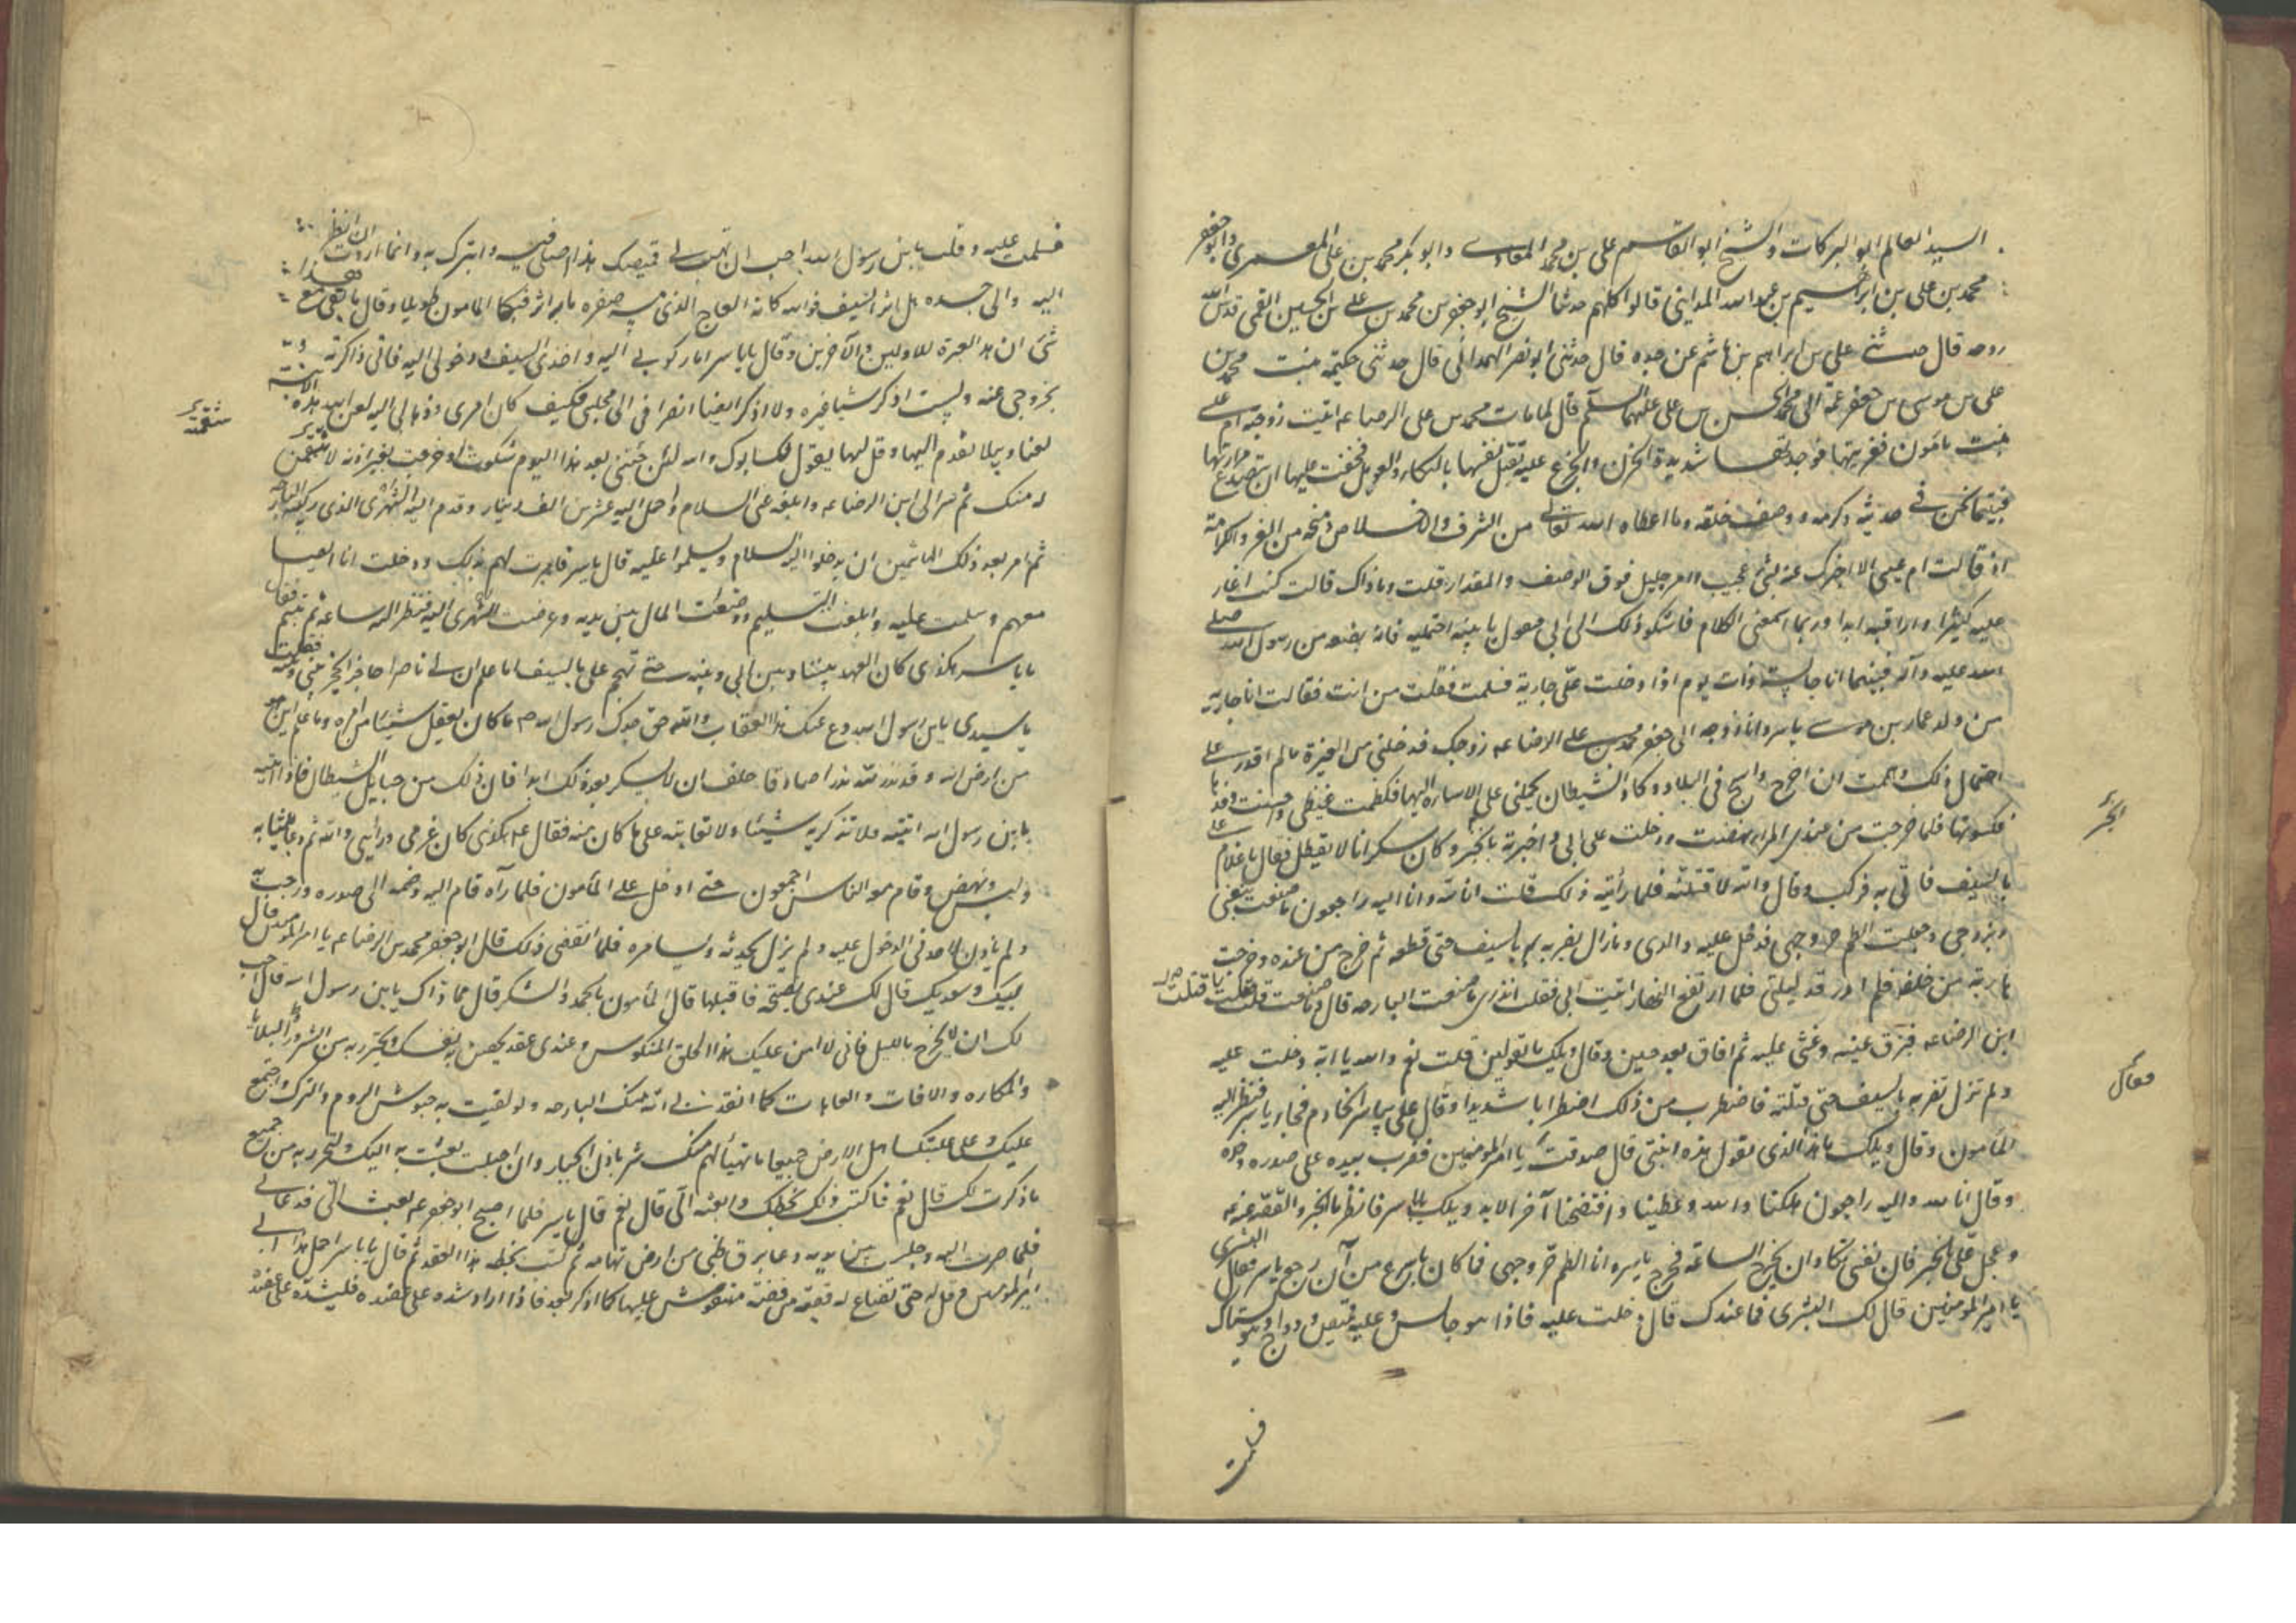 السيد العالم ابو البركات والشيخ ابو القاسم على بن محمد المعاذى وابو بكر محمد بن على المعمرى وابو جعفر
محمد بن على بن ابراهيم بن عبد الله المداينى قالوا كلهم حدثنا الشيخ ابو جعفر بن محمد بن على بن الحسين القمى قدس الله
روحه قال حدثنى على بن ابراهيم بن هاشم عن جده قال حدثنى ابو نصر الهمدانى قال حدثتنى حكيمة بنت محمد بن
على بن موسى بن جعفر عمة ابى محمد الحسن بن على عليهما السلم قال لما مات محمد بن على الرضا ءم اتيت زوجته ام عيسى
بنت مامون فعزيتها فوجدتها شديدة الحزن والجزع عليه تقتل نفسها بالبكاء والعويل فخفت عليها ان تتصدع مرارتها
فبينما نحن فى حديثه وكرمه ووصف خلقه وما اعطاه الله تعالى من الشرف والاخلاص ومنحه من العز والكرامة
اذ قالت ام عيسى الا اخبرك عنه بشئ عجيب وامر جليل فوق الوصف والمقدار قلت وما ذاك قالت كنت اغار
عليه كثيرا واراقبه ابدا وربما اسمعنى الكلام فاشكو ذلك الى ابى فيقول يا بنية احتمليه فانه بضعة من رسول الله صلى
الله عليه وآله فبينما انا جالسة ذات يوم اذا دخلت على جارية فسلمت فقلت من انت فقالت انا جارية
من ولد عمار بن ياسر وانا زوجة ابى جعفر محمد بن على الرضا ءم زوجك فدخلنى من الغيرة ما لم اقدر على
احتمال ذلك وهممت ان اخرج واسيح فى البلاد وكاد الشيطان يحملنى على الاساءة اليها فكظمت غيظى واحسنت رفدها
فكسوتها فلما خرجت من عندى المراة نهضت ودخلت على ابى واخبرته بالخبر وكان سكرانا لا يعقل فقال يا غلام على
بالسيف فاتى به فركب وقال والله لاقتلنه فلما رأيته ذلك قلت انا لله وانا اليه راجعون ما صنعت بنفسى
وبزوجى وجعلت الطم حر وجهى فدخل عليه والدى وما زال يضربه بالسيف حتى قطعه ثم خرج من عنده وخرجت
هاربة من خلفه فلم ارقد ليلتى فلما ارتفع النهار اتيت ابى فقلت اتدرى ما صنعت البارحه قال وما صنعت قلت قتلت
ابن الرضا ءم فبرق عينه وغشى عليه ثم افاق بعد حين وقال ويلك ما تقولين قلت نعم والله يا ابة دخلت عليه
ولم تزل تضربه بالسيف حتى قتلته فاضطرب من ذلك اضطرابا شديدا وقال على بياسر الخادم فجاء ياسر فنظر اليه
المامون وقال ويلك ما هذا الذى تقول هذه ابنتى قال صدقت يا امير المومنين فضرب بيده على صدره وخده
وقال انا لله وانا اليه راجعون هلكنا والله وعطبنا وافتضحنا آخر الابد ويلك يا ياسر فانظر ما الخبر والقصة عنه ءم
وعجل على بالخبر فان نفسى تكاد ان يخرج الساعة فخرج ياسر وانا الطم حر وجهى فما كان باسرع من ان رجع ياسر فقال البشرى
يا امير المومنين قال لك البشرى فما عندك قال دخلت عليه فاذا هو جالس وعليه قميص ودواج وهو يستاك
فسلمت
الخبر
فقال
فسلمت عليه وقلت يا بن رسول الله احب ان تهب لى قميصك هذا اصلى فيه واتبرك به وانما اردت ان انظر
اليه والى جسده هل اثر السيف فوالله كانه العاج الذى مسه صفرة ما به اثر فبكى المامون طويلا وقال ما بقى مع هذا
شئ ان هذا لعبرة للاولين والآخرين وقال يا ياسر اما ركوبى اليه واخذى السيف ودخولى اليه فانى ذاكر له
بخروجى عنه ولست اذكر شيئا غيره ولا اذكر ايضا انصرافى الى مجلسى فكيف كان امرى وذهابى اليه لعن الله هذه الابنة
لعنا وبيلا تقدم اليها وقل لها يقول لك ابوك والله لئن جئتنى بعد هذا اليوم شكوت او خرجت بغير اذنه لانتقمن
له منك ثم سر الى ابن الرضا ءم وابلغه عنى السلام واحمل اليه عشرين الف دينار وقدم اليه الشهرى الذى ركبته البارحه
ثم امر بعد ذلك الهاشمين ان يدخلوا اليه بالسلام ويسلموا عليه قال ياسر فامرت لهم بذلك ودخلت انا ايضا
معهم وسلمت عليه وابلغت التسليم ووضعت المال بين يديه وعرضت الشهرى اليه فنظر اليه ساعة ثم تبسم فقال
يا ياسر هكذا كان العهد بيننا وبين ابى وبينه حتى تهجم على بالسيف اما علم ان لى ناصرا حاجزا يحجز بينى وبينه فقلت
يا سيدى يا بن رسول الله دع عنك هذا العتاب والله وحق جدك رسول الله ص ما كان يعقل شيئا من امره وما علم اين هو
من ارض الله وقد نذر لله نذرا صادقا وحلف ان لا يسكر بعد ذلك ابدا فان ذلك من حبايل الشيطان فاذا انت
يا بن رسول الله اتيته فلا تذكر به شيئا ولا تعاتبه على ما كان منه فقال ءم هكذا كان عزمى ورأيى والله ثم دعا بثيابه
ولبس ونهض وقام معه الناس اجمعون حتى ادخل على المأمون فلما رآه قام اليه وضمه الى صدره ورحب به
ولم ياذن لاحد فى الدخول عليه ولم يزل يحدثه ويسامره فلما انقضى ذلك قال ابو جعفر محمد بن الرضا ءم يا امير المومنين قال
لبيك وسعديك قال لك عندى نصيحة فاقبلها قال المأمون بالحمد والشكر قال فما ذاك يا بن رسول الله قال احب
لك ان لا يخرج بالليل فانى لا امن عليك هذا الخلق المنكوس وعندى عقد يحصن به نفسك ويحترز به من الشرور والبلايا
والمكاره والافات والعاهات كما انقذنى الله منك البارحه ولو لقيت به جيوش الروم والترك واجتمع
عليك وعلى غلبتك اهل الارض جميعا ما تهيأ لهم منك شر باذن الجبار وان احببت بعثت به اليك ولتحترز به من جميع
ما ذكرت لك قال نعم فاكتب ذلك بخطك وابعثه الى قال نعم قال ياسر فلما اصبح ابو جعفر ءم بعث الى فدعانى
فلما صرت اليه وجلست بين يديه دعا برق ظبى من ارض تهامه ثم كتب بخطه هذا العقد ثم قال يا ياسر احمل هذا الى
امير المومنين وقل له حتى يصاغ له قصبة من فضة منقوش عليها كما اذكر بعد فاذا اراد شده على عضده فليشده على عضده